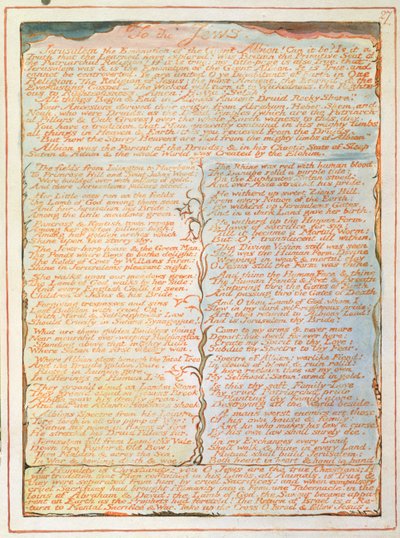 27
To the Jews.
Jerusalem the Emanation of the Giant Albion! Can it be? Is it a
Truth that the Learned have explored? Was Britain the Primitive Seat of
the Patriarchal Religion? If it is true: my title-page is also True, that
Jerusalem was & is the Emanation of the Giant Albion. It is True, and
cannot be controverted. Ye are united O ye Inhabitants of Earth in One
Religion. The Religion of Jesus: the most Ancient, the Eternal: & the
Everlasting Gospel — The Wicked will turn it to Wickedness, the Righte-
ous to Righteousness. Amen! Huzza! Selah!
All things Begin & End in Albions Ancient Druid Rocky Shore.
Your Ancestors derived their origin from Abraham, Heber, Shem, and
Noah, who were Druids: as the Druid Temples (which are the Patriarchal
Pillars & Oak Groves) over the whole Earth witness to this day.
You have a tradition, that Man anciently containd in his mighty limbs
all things in Heaven & Earth: this you recieved from the Druids.
But now the Starry Heavens are fled from the mighty limbs of Albion
Albion was the Parent of the Druids; & in his Chaotic State of Sleep
Satan & Adam & the whole World was Created by the Elohim.
The fields from Islington to Marybone,
To Primrose Hill and Saint Johns Wood:
Were builded over with pillars of gold,
And there Jerusalems pillars stood.
Her Little-ones ran on the fields
The Lamb of God among them seen
And fair Jerusalem his Bride:
Among the little meadows green.
Pancrass & Kentish-town repose
Among her golden pillars high:
Among her golden arches which
Shine upon the starry sky.
The Jews-harp-house & the Green Man;
The Ponds where Boys to bathe delight:
The fields of Cows by Willans farm:
Shine in Jerusalems pleasant sight.
She walks upon our meadows green:
The Lamb of God walks by her side:
And every English Child is seen,
Children of Jesus & his Bride,
Forgiving trespasses and sins
Lest Babylon with cruel Og,
With Moral & Self-righteous Law
Should Crucify in Satans Synagogue!
What are those golden Builders doing
Near mournful ever-weeping Paddington
Standing above that mighty Ruin
Where Satan the first victory won.
Where Albion slept beneath the Fatal Tree
And the Druids golden Knife,
Rioted in human gore,
In Offerings of Human Life
They groan'd aloud on London Stone
They groan'd aloud on Tyburns Brook
Albion gave his deadly groan,
And all the Atlantic Mountains shook
Albions Spectre from his Loins
Tore forth in all the pomp of War!
Satan his name: in flames of fire
He stretch'd his Druid Pillars far.
Jerusalem fell from Lambeth's Vale,
Down thro Poplar & Old Bow;
Thro Malden & acros the Sea,
In War & howling death & woe.
The Rhine was red with human blood:
The Danube rolld a purple tide:
On the Euphrates Satan stood:
And over Asia stretch'd his pride.
He witherd up sweet Zions Hill,
From every Nation of the Earth:
He witherd up Jerusalems Gates,
And in a dark Land gave her birth.
He witherd up the Human Form,
By laws of sacrifice for sin:
Till it became a Mortal Worm:
But O! translucent all within.
The Divine Vision still was seen
Still was the Human Form, Divine
Weeping in weak & mortal clay
O Jesus still the Form was thine.
And thine the Human Face & thine
The Human Hands & Feet & Breath
Entering thro' the Gates of Birth
And passing thro' the Gates of Death
And O thou Lamb of God, whom I
Slew in my dark self-righteous pride:
Art thou return'd to Albions Land!
And is Jerusalem thy Bride?
Come to my arms & never more
Depart; but dwell for ever here:
Create my Spirit to thy Love:
Subdue my Spectre to thy Fear.
Spectre of Albion! warlike Fiend!
In clouds of blood & ruin roll'd:
I here reclaim thee as my own
My Selfhood! Satan! armd in gold.
Is this thy soft Family-Love
Thy cruel Patriarchal pride
Planting thy Family alone,
Destroying all the World beside.
A mans worst enemies are those
Of his own house & family;
And he who makes his law a curse,
By his own law shall surely die.
In my Exchanges every Land
Shall walk, & mine in every Land,
Mutual shall build Jerusalem:
Both heart in heart & hand in hand.
If Humility is Christianity; you O Jews are the true Christians; If
your tradition that Man contained in his Limbs, all Animals, is True &
they were separated from him by cruel Sacrifices: and when compulsory
cruel Sacrifices had brought Humanity into a Feminine Tabernacle, in the
loins of Abraham & David: the Lamb of God, the Saviour became appa-
rent on Earth as the Prophets had foretold? The Return of Israel is a Re-
turn to Mental Sacrifice & War. Take up the Cross O Israel & follow Jesus.